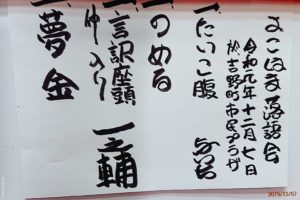 よこはま落語会
令和元年十二月七日
於吉野町市民プラザ
一、たいこ腹
一、のめる
一、言訳座頭 一之輔
仲入り
一、夢金
2019/12/07